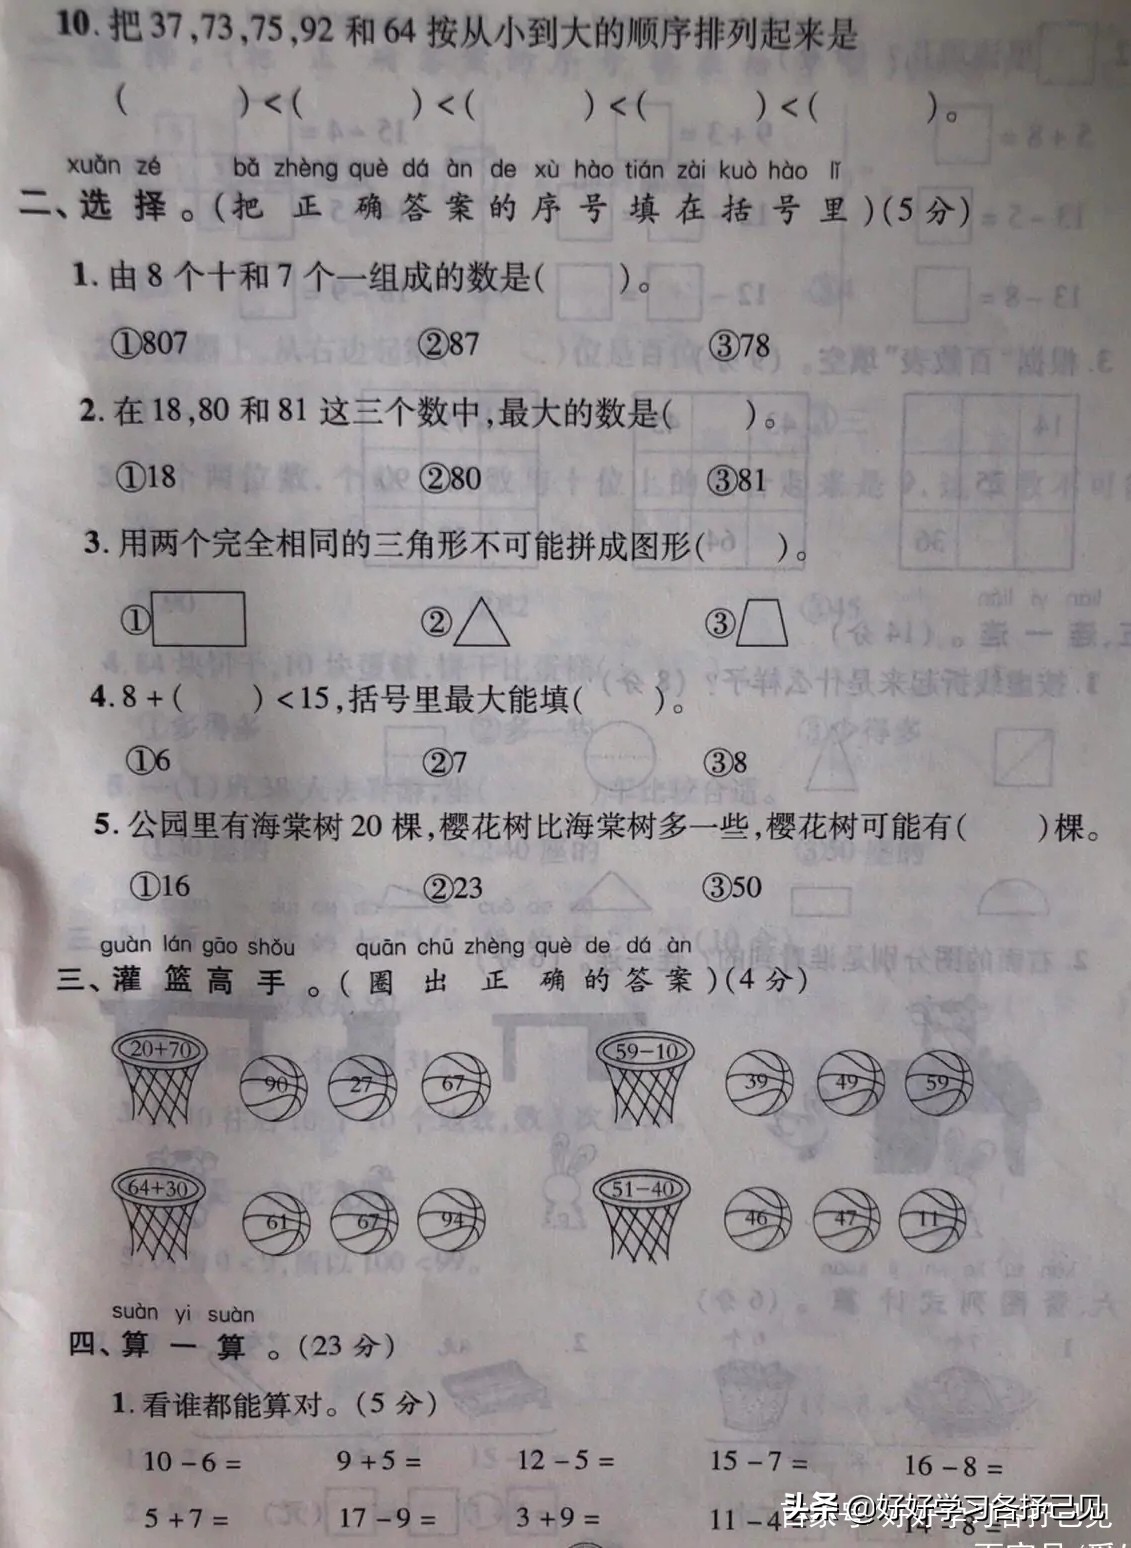 10.把37,73,75,92和64按从小到大的顺序排列起来是
(　　)<(　　)<(　　)<(　　)<(　　)。
xuǎn zé　bǎ zhèng què dá àn de xù hào tián zài kuò hào lǐ
二、选择。(把正确答案的序号填在括号里)(5分)
1.由8个十和7个一组成的数是(　　)。
①807　②87　③78
2.在18,80和81这三个数中,最大的数是(　　)。
①18　②80　③81
3.用两个完全相同的三角形不可能拼成图形(　　)。
①　②　③
4.8+(　　)<15,括号里最大能填(　　)。
①6　②7　③8
5.公园里有海棠树20棵,樱花树比海棠树多一些,樱花树可能有(　　)棵。
①16　②23　③50
guàn lán gāo shǒu　quān chū zhèng què de dá àn
三、灌篮高手。(圈出正确的答案)(4分)
20+70　90　27　67　59-10　39　49　59
64+30　61　67　94　51-40　46　47　11
suàn yi suàn
四、算一算。(23分)
1.看谁都能算对。(5分)
10-6=　9+5=　12-5=　15-7=　16-8=
5+7=　17-9=　3+9=　11-4　14-8=
头条@好好学习各抒己见